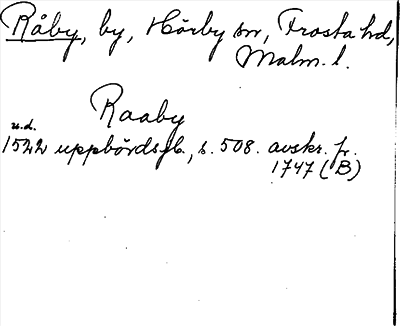 Råby, by, Hörby sn, Frosta hd,
Malm. l.
Raaby
u.d.
1522 uppbördsjb., s. 508. avskr. fr.
1747 (B)